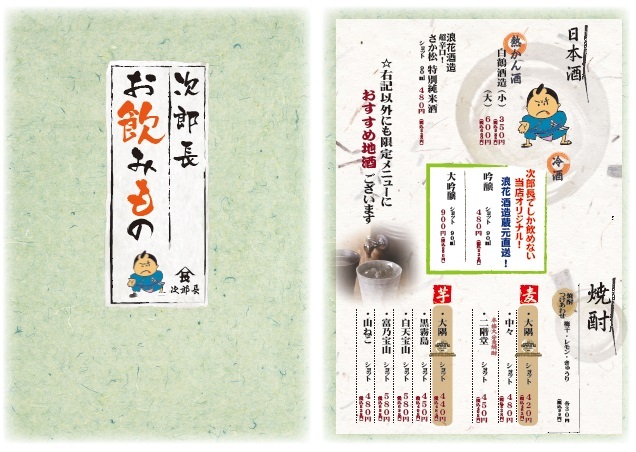 次郎長
お飲みもの
次郎長
日本酒
熱かん酒
白鶴酒造(小) 350円
(大) 600円
浪花酒造
超辛口!
さか松 特別純米酒
ショット 90ml 480円
☆右記以外にも限定メニューに
おすすめ地酒ございます
冷酒
次郎長でしか飲めない
当店オリジナル!
浪花酒造蔵元直送!
吟醸 ショット 90ml 480円
大吟醸 ショット 90ml 900円
焼酎
梅干・レモン・きゅうり 各30円
麦
・大隅 ショット 420円
・中々 ショット 480円
・二階堂 ショット 450円
芋
・大隅 ショット 440円
・黒霧島 ショット 450円
・白天宝山 ショット 580円
・富乃宝山 ショット 580円
・山ねこ ショット 480円